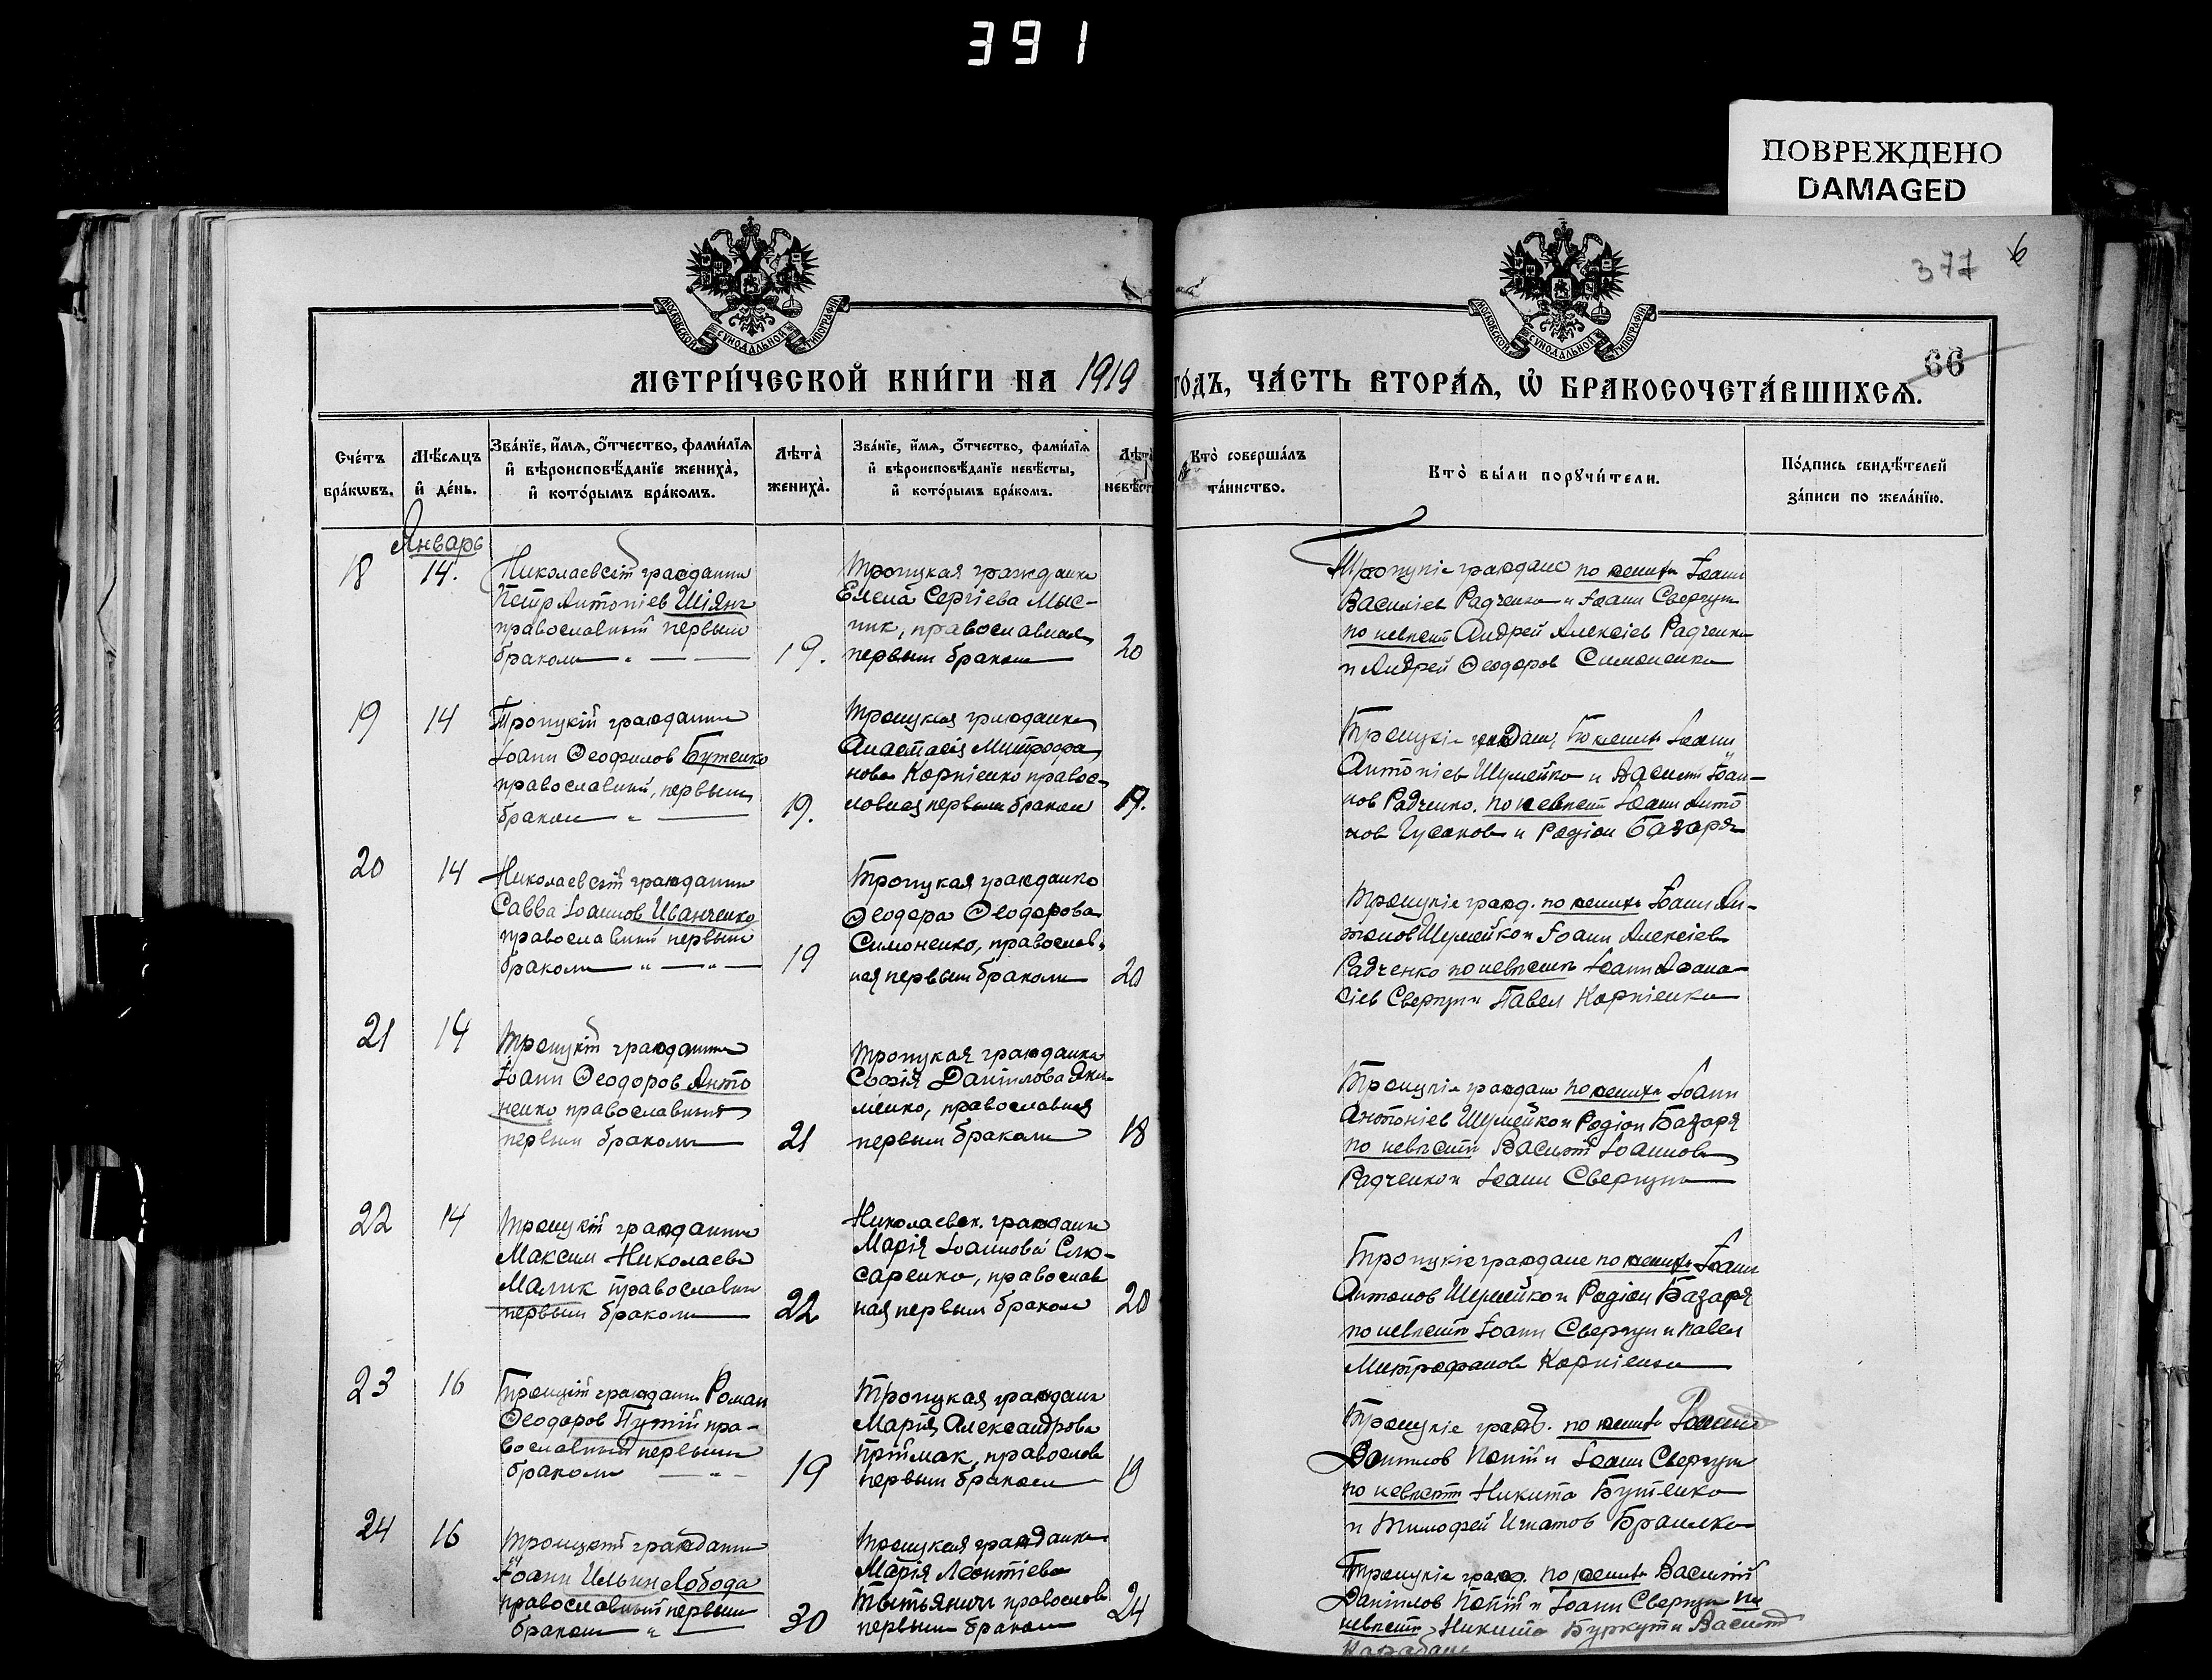 391
ПОВРЕЖДЕНО
DAMAGED
377 6
МОСКОВСКОЙ СѴНОДАЛЬНОЙ ТИПОГРАФІИ
МОСКОВСКОЙ СѴНОДАЛЬНОЙ ТИПОГРАФІИ
66
МЕТРИ́ЧЕСКОЙ КНИ́ГИ НА 1919 ГО́ДЪ, ЧА́СТЬ ВТОРА́Ѧ, Ѡ БРАКОСОЧЕТА́ВШИХСѦ.
Сче́тъ бра́кѡвъ.
Мѣ́сѧцъ и де́нь.
Зва́нїе, и́мѧ, ѻ́тчество, фами́лїѧ и вѣроисповѣ́данїе жениха̀, и кото́рымъ бра́комъ.
Лѣта̀ жениха̀.
Зва́нїе, и́мѧ, ѻ́тчество, фами́лїѧ и вѣроисповѣ́данїе невѣ́сты, и кото́рымъ бра́комъ.
Лѣта̀ невѣ́ст
Кто̀ соверша́лъ та́инство.
Кто̀ бы́ли порꙋчи́тели.
По́дпись свидѣ́телей за́писи по жела́нїю.
Январь
18
14.
Николаевскій гражданин
Петр Антоніев Шіян
православный первым
браком
19.
Троицкая гражданка
Елена Сергіева Мыс-
ник, православная
первым браком
20
Троицкіе граждане по жениху Іоанн
Василіев Радченко и Іоанн Свергун
по невесте Андрей Алексіев Радченко
и Андрей Ѳеодоров Симоненко
19
14
Троицкій гражданин
Іоанн Ѳеофилов Бутенко
православный, первым
браком
19.
Троицкая гражданка
Анастасія Митрофа
нова Корніенко правос-
лавная первым браком
19.
Троицкіе граждане, По жениху Іоанн
Антоніев Шумейко и Василій Іоан-
нов Радченко. по невесте Іоанн Анто
нов Гусаков и Родіон Базаря
20
14
Николаевскій гражданин
Савва Іоаннов Иванченко
православный первым
браком
19
Троицкая гражданка
Ѳеодора Ѳеодорова
Симоненко, православ-
ная первым браком
20
Троицкіе гражд. по жениху Іоанн Ан-
тонов Шумейко и Іоанн Алексіев
Радченко по невесте Іоанн Афана
сіев Свергун и Павел Корніенко
21
14
Троицкій гражданин
Іоанн Ѳеодоров Анто
ненко православный
первым браком
21
Троицкая гражданка
Софія Даніилова Яки-
менко, православная
первым браком
18
Троицкіе граждане по жениху Іоанн
Антоніев Шумейко и Родіон Базаря
по невесте Василій Іоаннов
Радченко и Іоанн Свергун
22
14
Троицкій гражданин
Максим Николаев
Малик православный
первым браком
22
Николаевск. гражданка
Марія Іоаннова Слю-
саренко, православ
ная первым браком
20
Троицкіе граждане по жениху Іоанн
Антонов Шумейко и Родіон Базаря
по невесте Іоанн Свергун и Павел
Митрофанов Корніенко
23
16
Троицкій гражданин Роман
Ѳеодоров Путій пра-
вославный первым
браком
19
Троицкая граждан
Марія Александрова
Прыймак, православ
первым браком
19
Троицкіе гражд. по жениху
Даніилов Попій и Іоанн Свергун
по невесте Никита Бутенко
и Тимофей Игнатов Браилко
24
16
Троицкій гражданин
Іоанн Ильин Лобода
православный первым
браком
30
Троицкая гражданка
Марія Леонтіева
Тытьянич православ
первым браком
24
Троицкіе гражд. по жениху Василій
Даніилов Попій и Іоанн Свергун по
невесте Никита Буркут и Василій